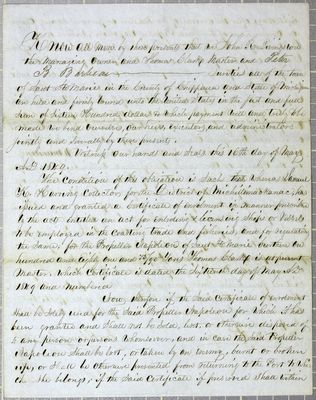 Know all men by these presents that we John Livingstone
the Managing Owner and Thomas Clark Master and Peter
B. Barbeau Sureties all of the Town
of Saut Ste Marie in the County of Chippewa and State of Michigan
are held and firmly bound unto the United States in the full and just
Sum of Sixteen Hundred dollars to which payment well and truly to be
made we bind ourselves, our heirs, executors and administrators
jointly and severally by these presents.
Witness our hands and seals this 16th day of May
A.D. 1849.
The Condition of this obligation is such that whereas Samuel
K. Haring Collector for the District of Michilimackinac, has
issued and granted a Certificate of enrolment in manner prescribed
by the act entitled an act for enroling & licensing Ships or Vessels
to be employed in the Coasting trade and fisheries, and for regulating
the Same, for the Propeller Napoleon of Saut Ste Marie burthen one
hundred and eighty one and Tons Thomas Clark is at present
Master. which Certificate is dated the Sixteenth day of May A.D.
1849 and numbered
Now therefore if the said Certificate of enrolment
shall be solely used for the Said Propeller Napoleon for which it has
been granted and shall not be sold, lent, or otherwise disposed of
to any person or persons whomsoever, and in case the said Propeller
Napoleon shall be lost, or taken by an enemy, burnt or broken
up, or shall be otherwise prevented from returning to the Port to which
she belongs, if the Said Certificate if preserved shall within